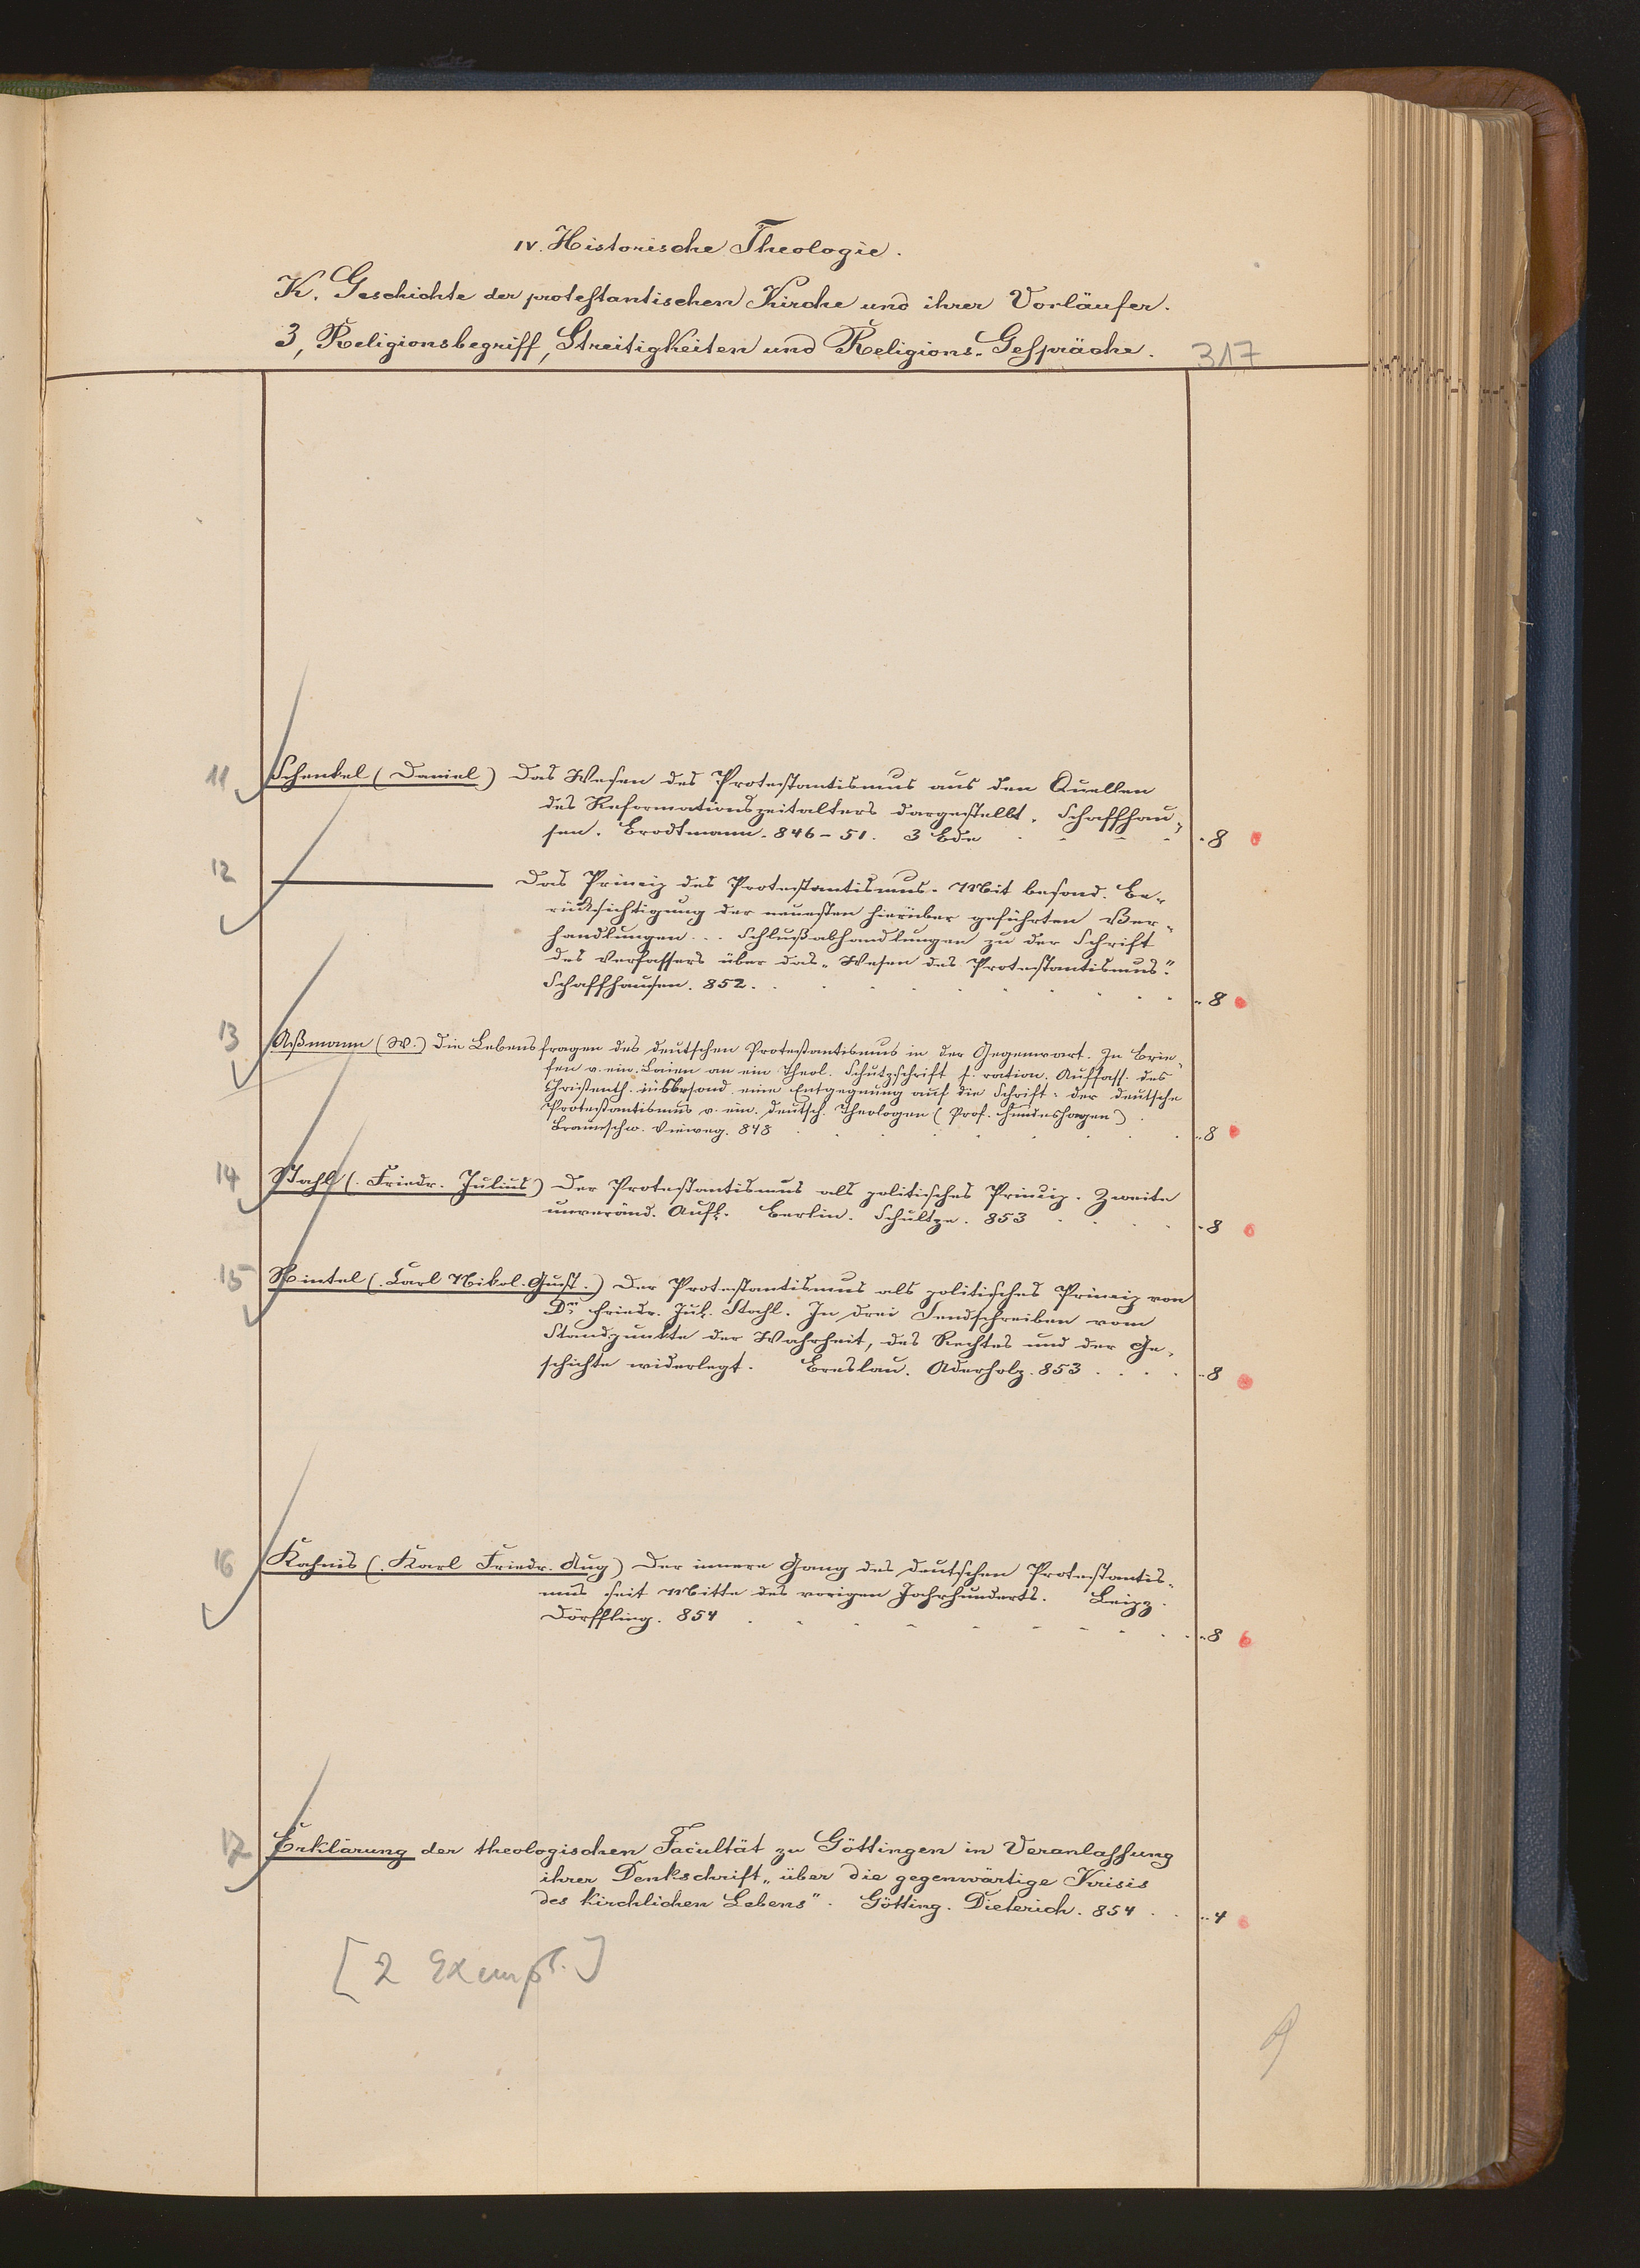 IV. Historische Theologie.
K. Geschichte der protestantischen Kirche und ihrer Vorläufer.
3, Religionsbegriff, Streitigkeiten und Religions-Gespräche. 317
11 Schenkel (Daniel) Das Wesen des Protestantismus aus den Quellen
des Reformationszeitalters dargestellt. Schaffhau-
sen. Brodtmann. 846-51. 3 Bde . - - - -8
12 ——— Das Princip des Protestantismus. Mit besond. Be-
rücksichtigung der neuesten hierüber geführten Ver-
handlungen ... Schlußabhandlungen zu der Schrift
des Verfassers über das „Wesen des Protestantismus".
Schaffhausen. 852. . . . . . . . . -8
13 Aßmann (W.) die Lebensfragen des deutschen Protestantismus in der Gegenwart. In Brie-
fen v. ein. Laien an ein Theol. Schutzschrift f. ration. Auffass. des
Christenth. insbesond. eine Entgegnung auf die Schrift: der deutsche
Protestantismus v. ein. deutsch. Theologen (Prof. Hundeshagen) .
Braunschw. Vieweg. 848 . . . . . . . -8
14 Stahl (Friedr. Julius) Der Protestantismus als politisches Princip. Zweite
unveränd. Aufl. Berlin. Schultze. 853 . . . . -8
15 Rintel (Carl Nikol. Gust.) Der Protestantismus als politisches Princip von
Dr. Friedr. Jul. Stahl. In drei Sendschreiben vom
Standpunkte der Wahrheit, des Rechtes und der Ge-
schichte widerlegt. Breslau. Aderholz. 853 . . . . -8
16 Kahnis (Karl Friedr. Aug) Der innere Gang des deutschen Protestantis-
mus seit Mitte des vorigen Jahrhunderts. Leipz.
Dörffling. 854 . - - - - - - - . . -8
17 Erklärung der theologischen Facultät zu Göttingen in Veranlassung
ihrer Denkschrift „über die gegenwärtige Krisis
des kirchlichen Lebens". Götting. Dieterich. 854 . . -4
[2 Exempl.]
9